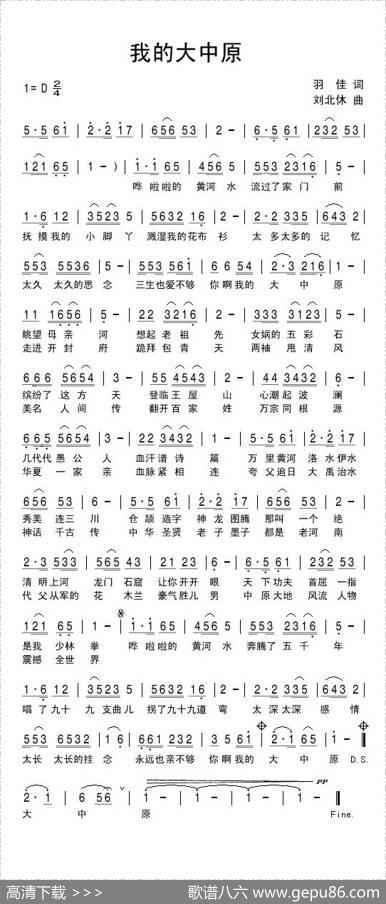 我的大中原
1=D 2/4
羽 佳 词
刘北休 曲
5·5 6i | 2·2 i7 | 656 53 | 2 - | 6·5 61 | 232 53 |
121 65 | 1 - ) | i·i 65 | 456 5 | 553 2316 | 5 - |
哗 啦啦的 黄河 水 流过了家 门 前
1·6 12 | 3523 5 | 5632 16 | 2 - | 2·2 335 | 643 2 |
抚 摸我的 小脚 丫 溅湿我的花布 衫 太 多太多的 记 忆
553 5356 | 5 - | 553 561 | 6 6 54 | 2·3 216 | 1 - |
太久 太久的思 念 三生也爱不够 你啊我的 大 中 原
11 1656 | 5 - | 22 3216 | 2 - | 333 3123 | 5 - |
眺望 母 亲 河 想起 老 祖 先 女娲的 五 彩 石
走进 开 封 府 跪拜 包 青 天 两袖 甩 清 风
666 5654 | 3 - | 55 4543 | 2 - | 44 3432 | 6 - |
缤纷了 这 方 天 登临 王 屋 山 心潮 起 波 澜
美名 人 间 传 翻开 百 家 姓 万宗 同 根 源
665 5654 | 3 - | 22 3432 | 1 - | 5·5 6i | 2·2 i7 |
几代代 愚 公 人 血汗 谱 诗 篇 万 里黄河 洛 水伊水
华夏 一 家 亲 血脉 紧 相 连 夸 父追日 大 禹治水
656 53 | 6 - | 5·5 6i | 2·2 i7 | 656 53 | 2 - |
秀美 连三 川 仓 颉 造字 神 龙 图腾 那叫 一个 绝
神话 千古 传 中 华 圣贤 老 子 墨子 都是 老河 南
1·2 53 | 565 43 | 21 23 | 2 - | 6·5 61 | 232 53 |
清 明上河 龙门 石窟 让你 开开 眼 天 下功夫 首屈 一指
代 父从军的 花 木兰 豪气 胜儿 男 中 原大地 风流 人物
121 65 | 1 - | i·i 65 | 456 5 | 553 2316 | 5 - |
是我 少林 拳 哗 啦啦的 黄河 水 奔腾了五 千 年
震撼 全世 界
1·6 12 | 3523 5 | 5632 16 | 2 - | 2·2 335 | 643 2 |
唱 了九十 九 支曲儿 拐了九十九道 弯 太 深太深 感 情
553 5632 | 1 6 | 661 561 | 6 6 54 | 2·1 216 | 1 - ‖
太长 太长的挂 念 永远也亲不够 你啊我的 大 中 原 D.S.
2·1 | 6 56 | 1 - | 1 - | 1 - | 1 - ‖
pp
大 中 原 Fine.
高清下载 >>>
歌谱八六 www.gepu86.com